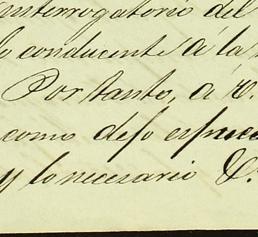 interrogatorio del
lo conducente á la
Por tanto, á V.
como dejo espues
y lo necesario &.